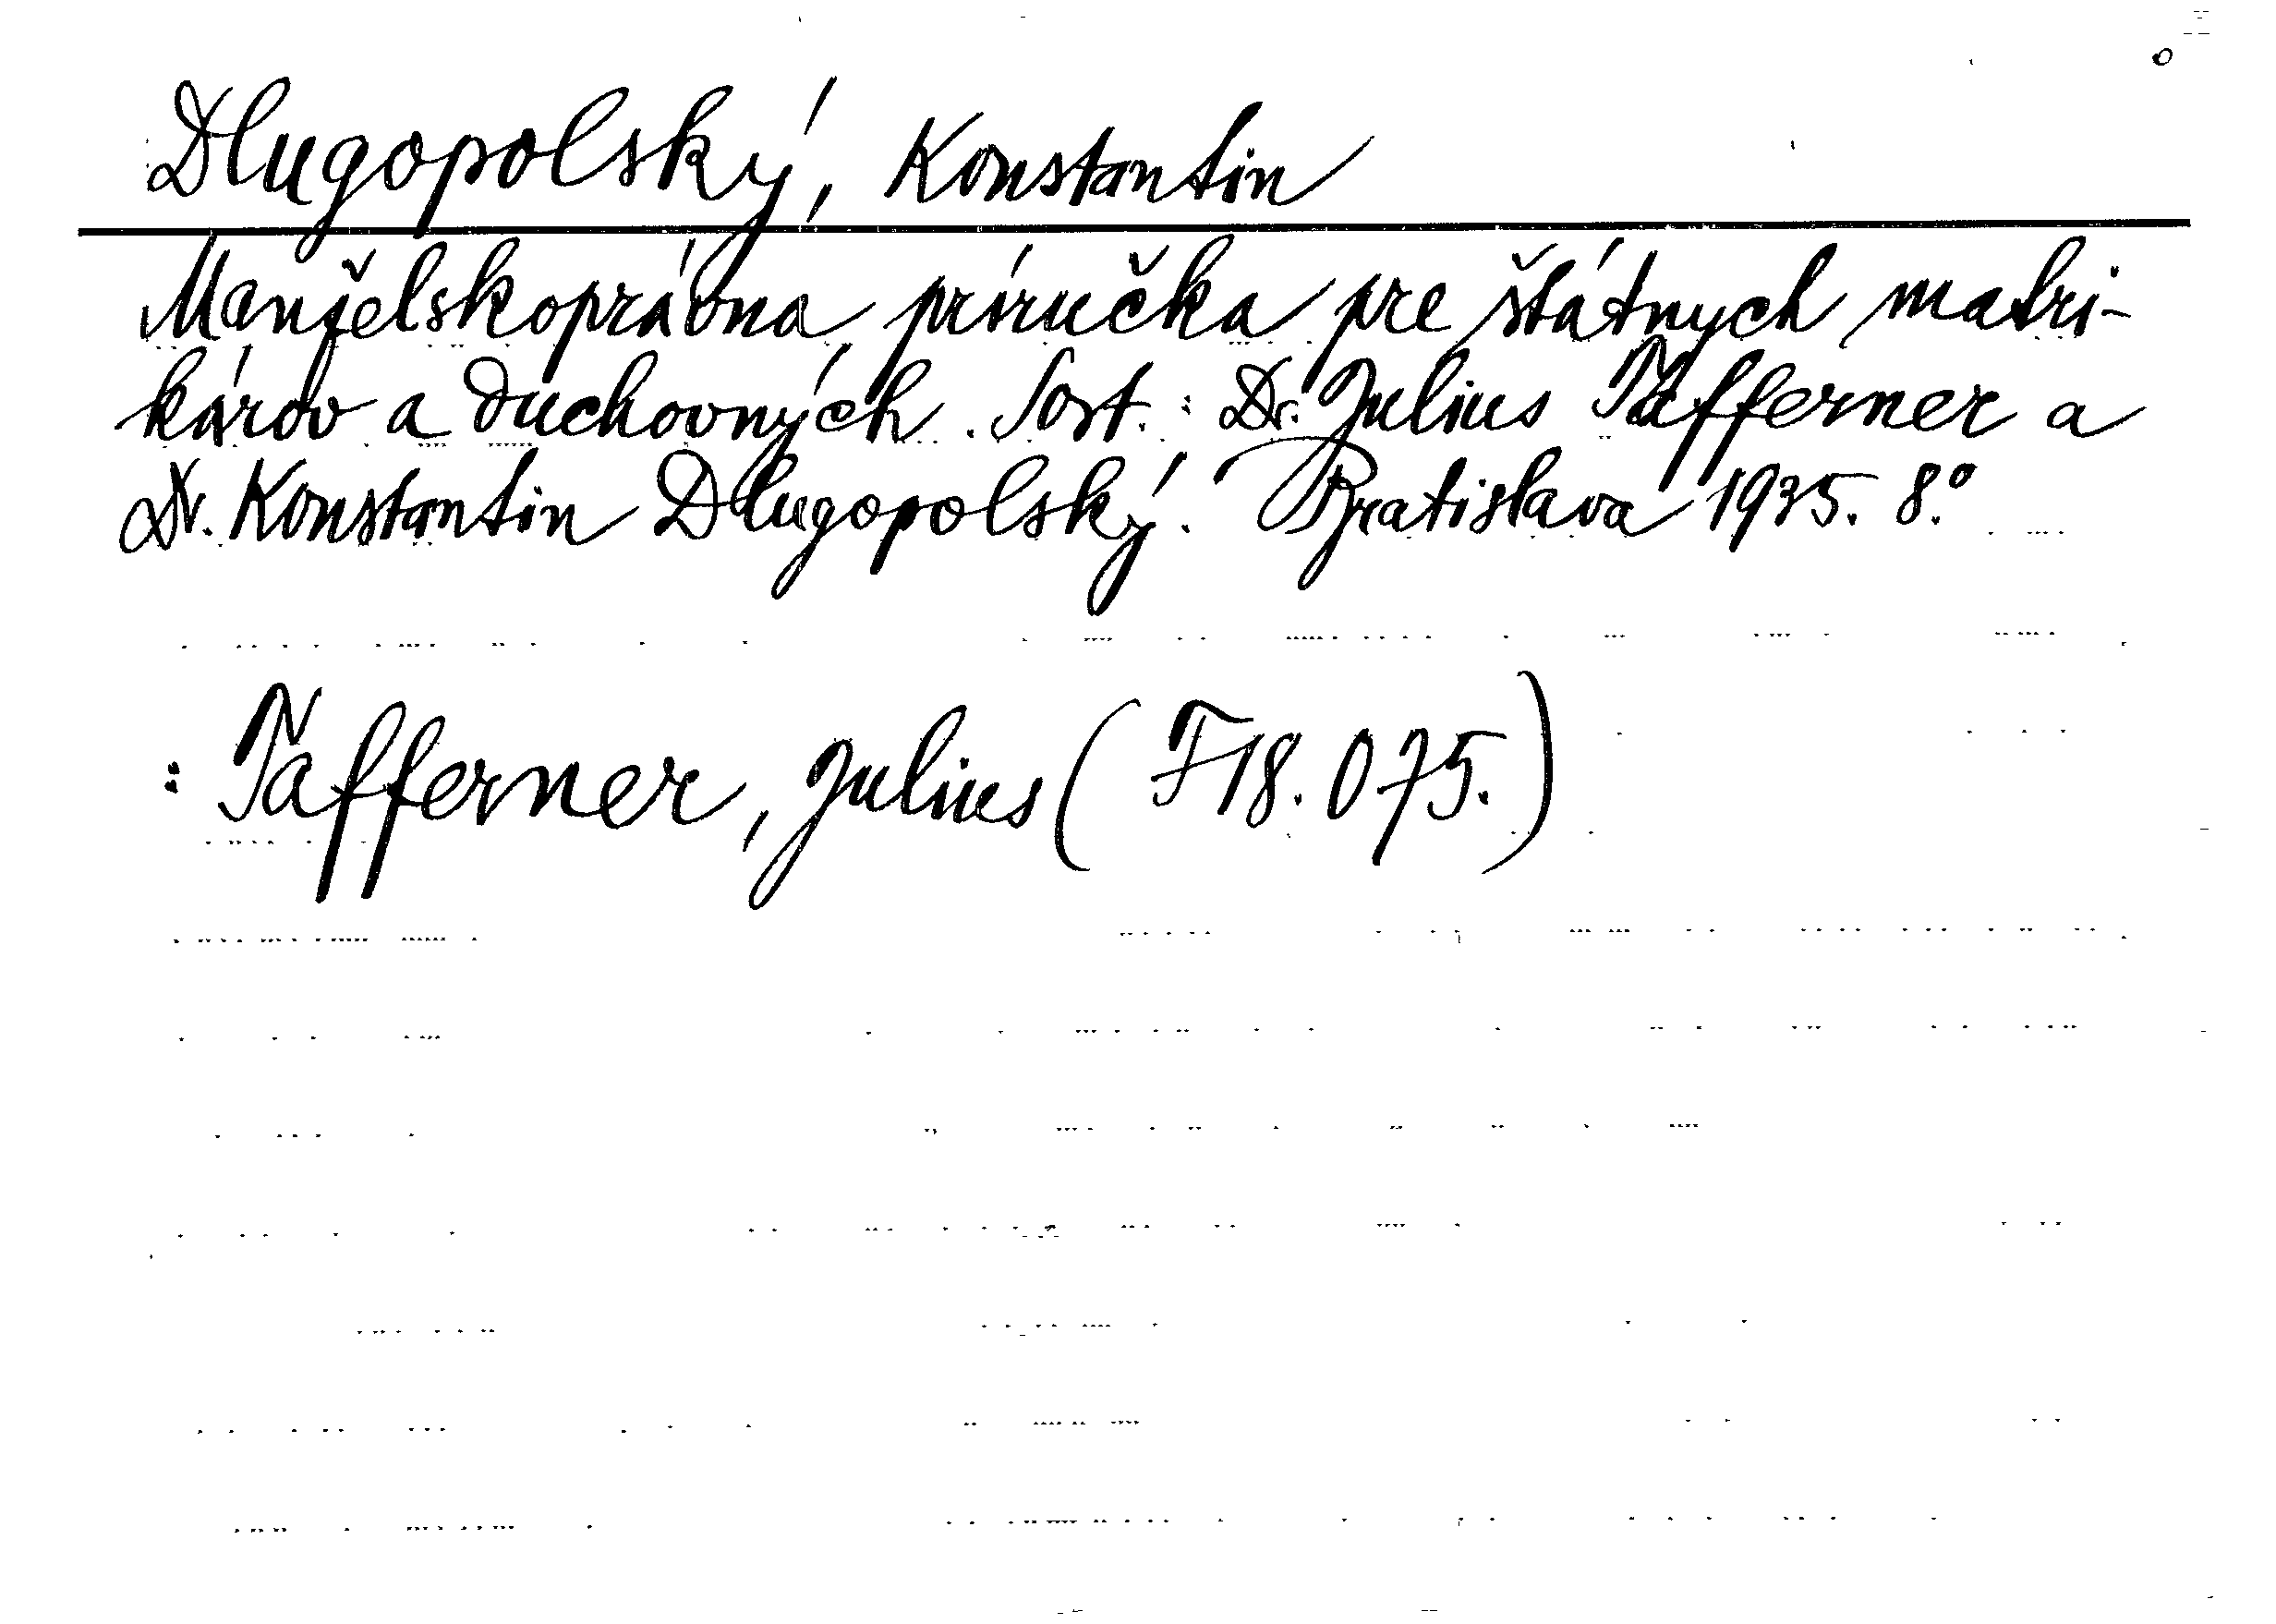 Dlugopolský, Konstantin
Manželskoprávna príručka pre štátnych matri-
károv a duchovných. Sost.: Dr. Julius Tafferner a
Dr. Konstantin Dlugopolský. Bratislava 1935. 8.º
: Tafferner, Julius (F18.075.)